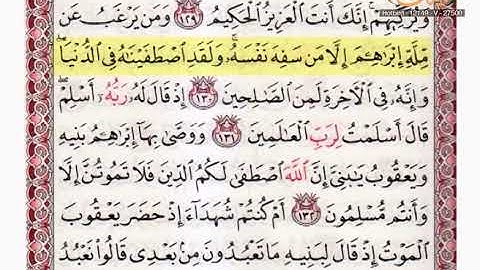 Hotbird - 12149 - V - 27500
وَيُزَكِّيهِمْ ۚ إِنَّكَ أَنتَ الْعَزِيزُ الْحَكِيمُ ﴿١٢٩﴾ وَمَن يَرْغَبُ عَن
مِّلَّةِ إِبْرَاهِـۧمَ إِلَّا مَن سَفِهَ نَفْسَهُۥ ۚ وَلَقَدِ اصْطَفَيْنَٰهُ فِى الدُّنْيَا ۖ
وَإِنَّهُۥ فِى الْأَخِرَةِ لَمِنَ الصَّٰلِحِينَ ﴿١٣٠﴾ إِذْ قَالَ لَهُۥ رَبُّهُۥٓ أَسْلِمْ ۖ
قَالَ أَسْلَمْتُ لِرَبِّ الْعَٰلَمِينَ ﴿١٣١﴾ وَوَصَّىٰ بِهَآ إِبْرَٰهِـۧمُ بَنِيهِ
وَيَعْقُوبُ يَٰبَنِىَّ إِنَّ اللَّهَ اصْطَفَىٰ لَكُمُ الدِّينَ فَلَا تَمُوتُنَّ إِلَّا
وَأَنتُم مُّسْلِمُونَ ﴿١٣٢﴾ أَمْ كُنتُمْ شُهَدَآءَ إِذْ حَضَرَ يَعْقُوبَ
الْمَوْتُ إِذْ قَالَ لِبَنِيهِ مَا تَعْبُدُونَ مِنۢ بَعْدِى قَالُوا۟ نَعْبُدُ